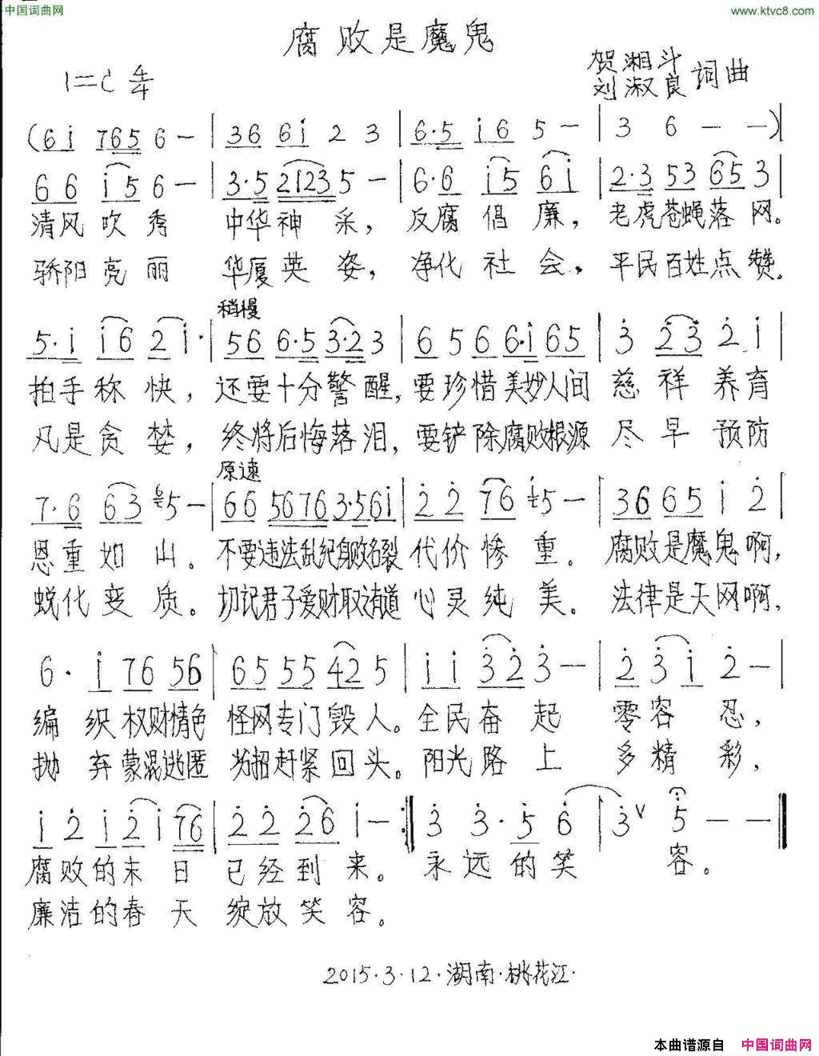 中国词曲网
www.ktvc8.com
腐败是魔鬼
1=C 4/4
贺湘斗
刘淑良 词曲
(6i 765 6 — | 36 6i 2 3 | 6·5 i6 5 — | 3 6 — —)|
66 i56 6 — | 3·5 21235 — | 6·6 i5 6i | 2·3 53 653 |
清风吹秀 中华神采， 反腐倡廉， 老虎苍蝇落网。
骄阳亮丽 华厦英姿， 净化社会， 平民百姓点赞。
稍慢
5·i i6 2i· | 56 6·5 3·23 | 6 5 6 6·i 65 | 3 23 2i |
拍手称快， 还要十分警醒， 要珍惜美妙人间 慈祥养育
凡是贪婪， 终将后悔落泪， 要铲除腐败根源 尽早预防
原速
7·6 63 5 — | 66 5676 3·56i | 2 2 76 5 — | 36 65 i 2 |
恩重如山。 不要违法乱纪身败名裂 代价惨重。 腐败是魔鬼啊，
蜕化变质。 切记君子爱财取之有道 心灵纯美。 法律是天网啊，
6· i 76 56 | 65 55 42 5 | i i 32 3 — | 2 3i 2 — |
编织权财情色 怪网专门毁人。 全民奋起 零容忍，
抛弃蒙混逃匿 招赶紧回头。 阳光路上 多精彩，
i 2 i2 i 76 | 22 26 i — :| 3 3· 5 6 | 3 ∨ 5 — — ‖
腐败的末日 已经到来。 永远的笑 容。
廉洁的春天 绽放笑容。
2015·3·12·湖南·桃花江·
本曲谱源自 中国词曲网